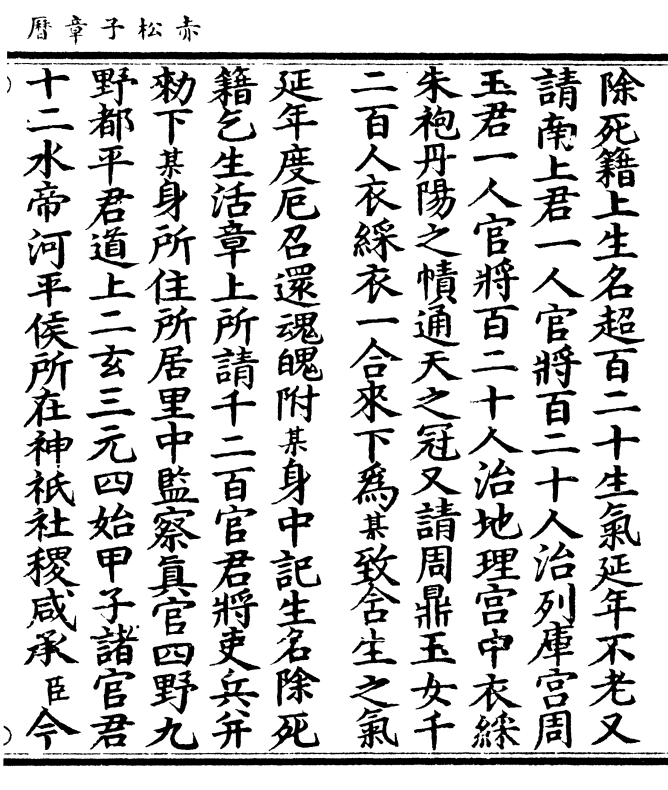 赤松子章曆
除死籍上生名超百二十生氣延年不老又
請南上君一人官將百二十人治列庫宮周
玉君一人官將百二十人治地理宮中衣綵
朱袍丹陽之幘通天之冠又請周鼎玉女千
二百人衣綵衣一合來下爲某致含生之氣
延年度厄召還魂魄附某身中記生名除死
籍乞生活章上所請千二百官君將吏兵并
勑下某身所住所居里中監察眞官四野九
野都平君道上二玄三元四始甲子諸官君
十二水帝河平侯所在神祇社稷咸承臣今